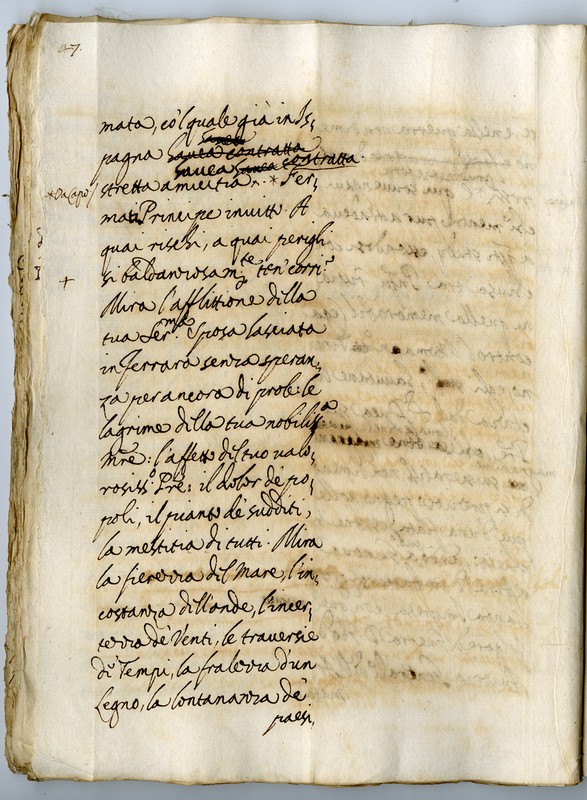 47.
mata, co'l quale già in Is,
pagna hauea contratta
stretta amicitia. * Fer,
* Da Capo
mati Principe inuitt.º A
quai rischi, a quai perigli
sì baldanzosam.te ten' corri?
Mira l'afflittione della
tua Ser.ma Sposa lasciata
in Ferrara senza speran,
za per ancora di prole: le
lagrime della tua nobiliss.a
M̃re: l'affetto del tuo valo,
rosiss.o P̃re: il dolor de' po,
poli, il pianto de' sudditi,
la mestitia di tutti. Mira
la fierezza del Mare, l'in,
costanza dell'onde, l'incer,
tezza de' Venti, le trauersie
de' Tempi, la fralezza d'un
Legno, la lontananza de'
paesi,